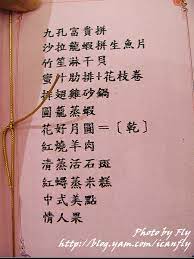 九孔富貴拼
沙拉龍蝦拼生魚片
竹笙淋干貝
蜜汁肋排+花枝卷
排翅雞砂鍋
圓籠蒸蝦
花好月圓=〔乾〕
紅燒羊肉
清蒸活石斑
紅蟳蒸米糕
中式美點
情人果
Photo by Fly
http://blog.yam.com/icanfly